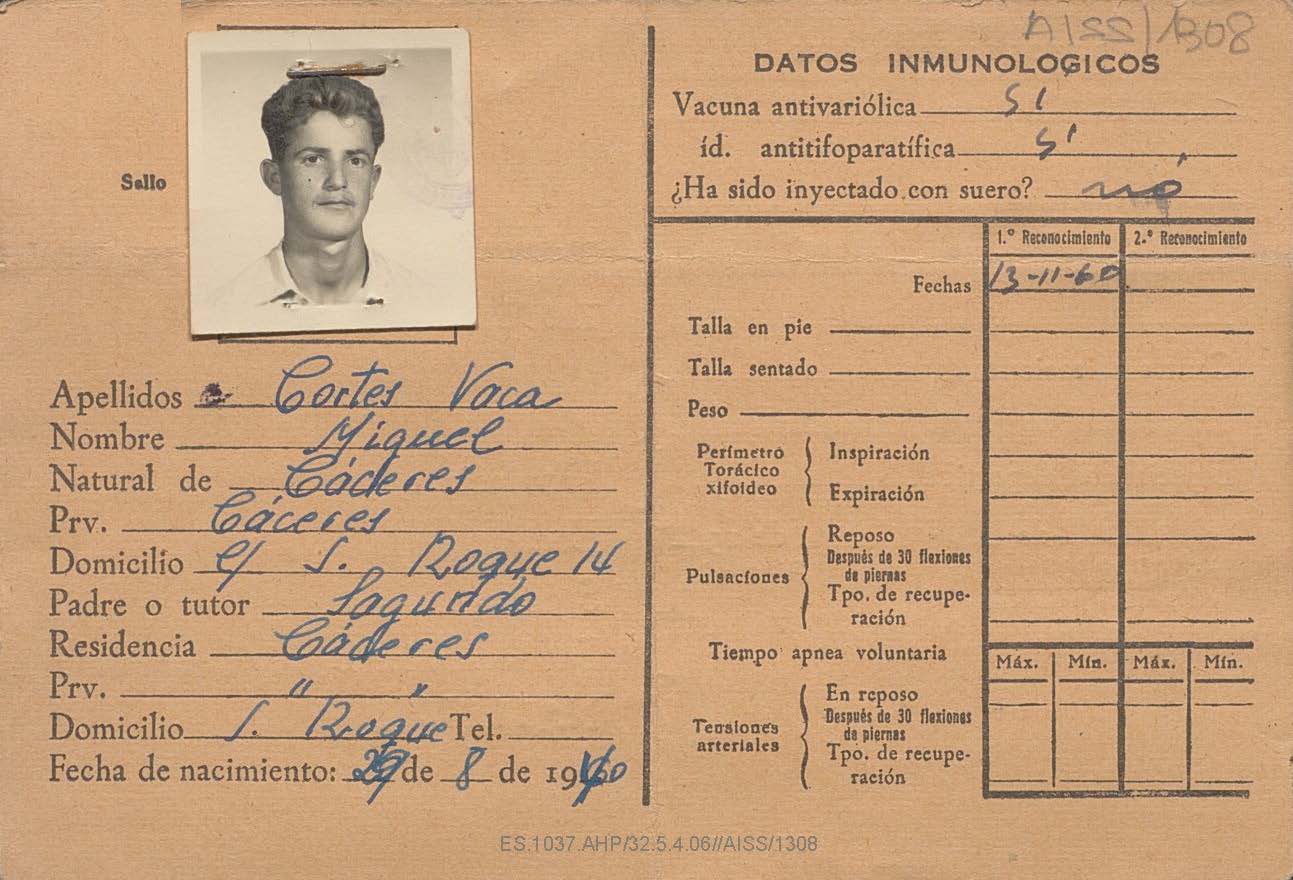 AISS/1308
Sello
Apellidos Cortes Vaca
Nombre Miguel
Natural de Cáceres
Prv. Cáceres
Domicilio c/ S. Roque 14
Padre o tutor Sagundo
Residencia Cáceres
Prv. " "
Domicilio S. Roque Tel.
Fecha de nacimiento: de 8 de 1940
DATOS INMUNOLOGICOS
Vacuna antivariólica SI
íd. antitifoparatífica SI
¿Ha sido inyectado con suero? nó
1.º Reconocimiento 2.º Reconocimiento
Fechas 13-11-60
Talla en pie
Talla sentado
Peso
Perímetro Torácico xifoideo
Inspiración
Expiración
Pulsaciones
Reposo
Después de 30 flexiones
de piernas
Tpo. de recupe-
ración
Tiempo apnea voluntaria
Máx. Mín. Máx. Mín.
Tensiones arteriales
En reposo
Después de 30 flexiones
de piernas
Tpo. de recupe-
ración
ES.1037.AHP/32.5.4.06//AISS/1308